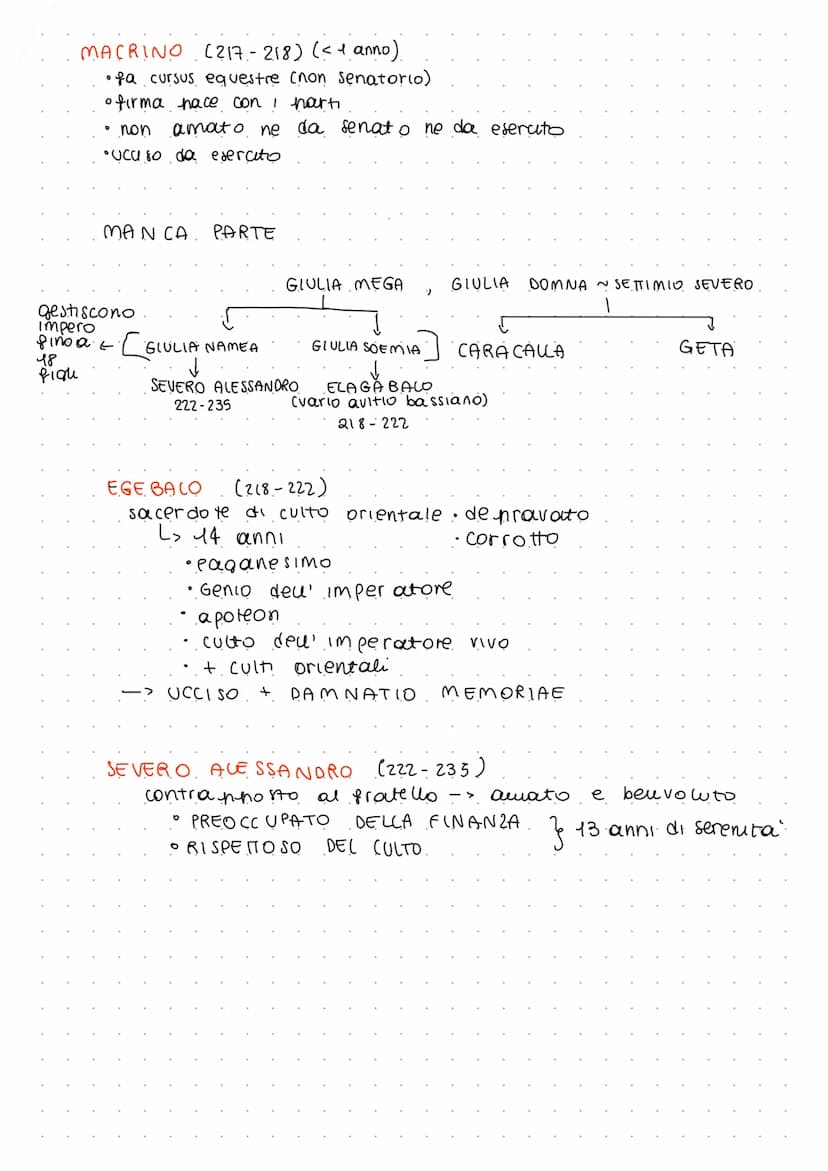 MACRINO (217-218) (<1 anno)
• fa cursus equestre (non senatorio)
• firma pace con i parti
• non amato ne da senato ne da esercito
• ucciso da esercito
MANCA PARTE
GIULIA MEGA , GIULIA DOMNA ~ SETTIMIO SEVERO
gestiscono
impero
fino a ← [ GIULIA NAMEA GIULIA SOEMIA ] CARACALLA GETA
18
figli
SEVERO ALESSANDRO ELAGABALO
222-235 (vario avitio bassiano)
218-222
EGEBALO (218-222)
sacerdote di culto orientale • depravato
↳ 14 anni • corrotto
• paganesimo
• Genio dell' imperatore
• apoteon
• culto dell' imperatore vivo
• + culti orientali
—> UCCISO + DAMNATIO MEMORIAE
SEVERO ALESSANDRO (222-235)
contrapposto al fratello —> amato e benvoluto
• PREOCCUPATO DELLA FINANZA } 13 anni di serenità
• RISPETTOSO DEL CULTO